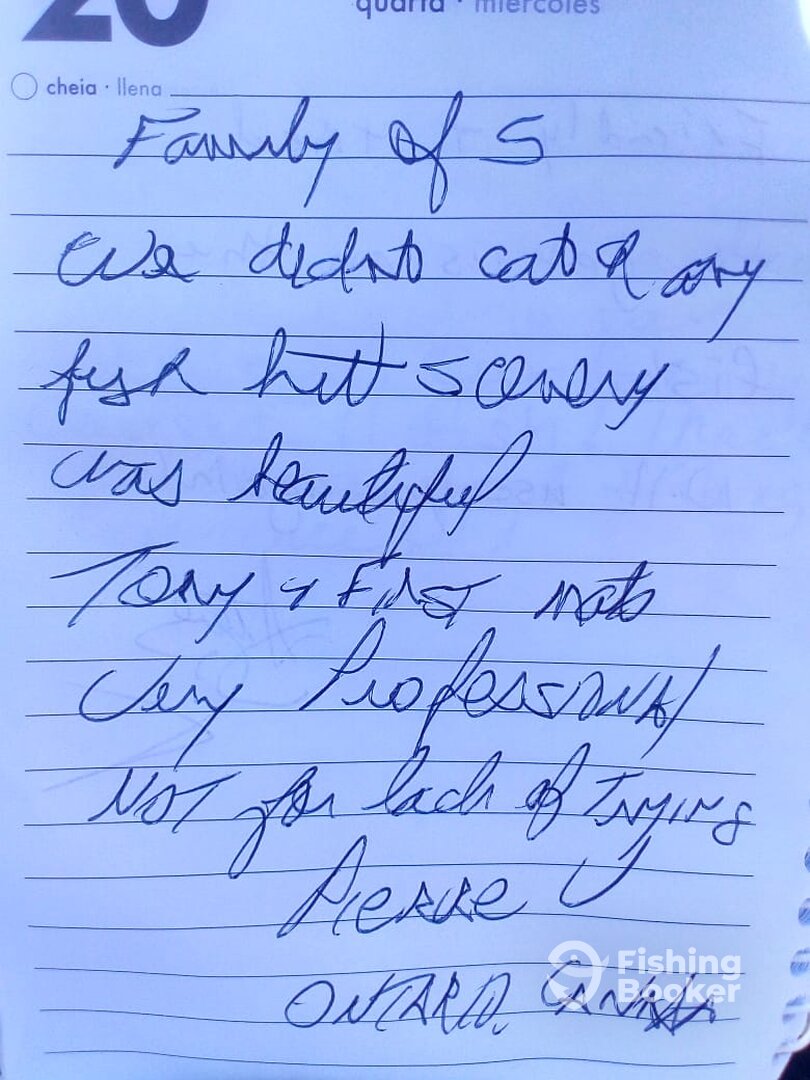 20
quarta · miércoles
cheia · llena
Family of 5
We didnt catch any
fish but scenery
was beautiful
Tony & First mate
Very Professional
NOT for lack of Trying
PIERRE
ONTARIO. CANADA
Fishing
Booker